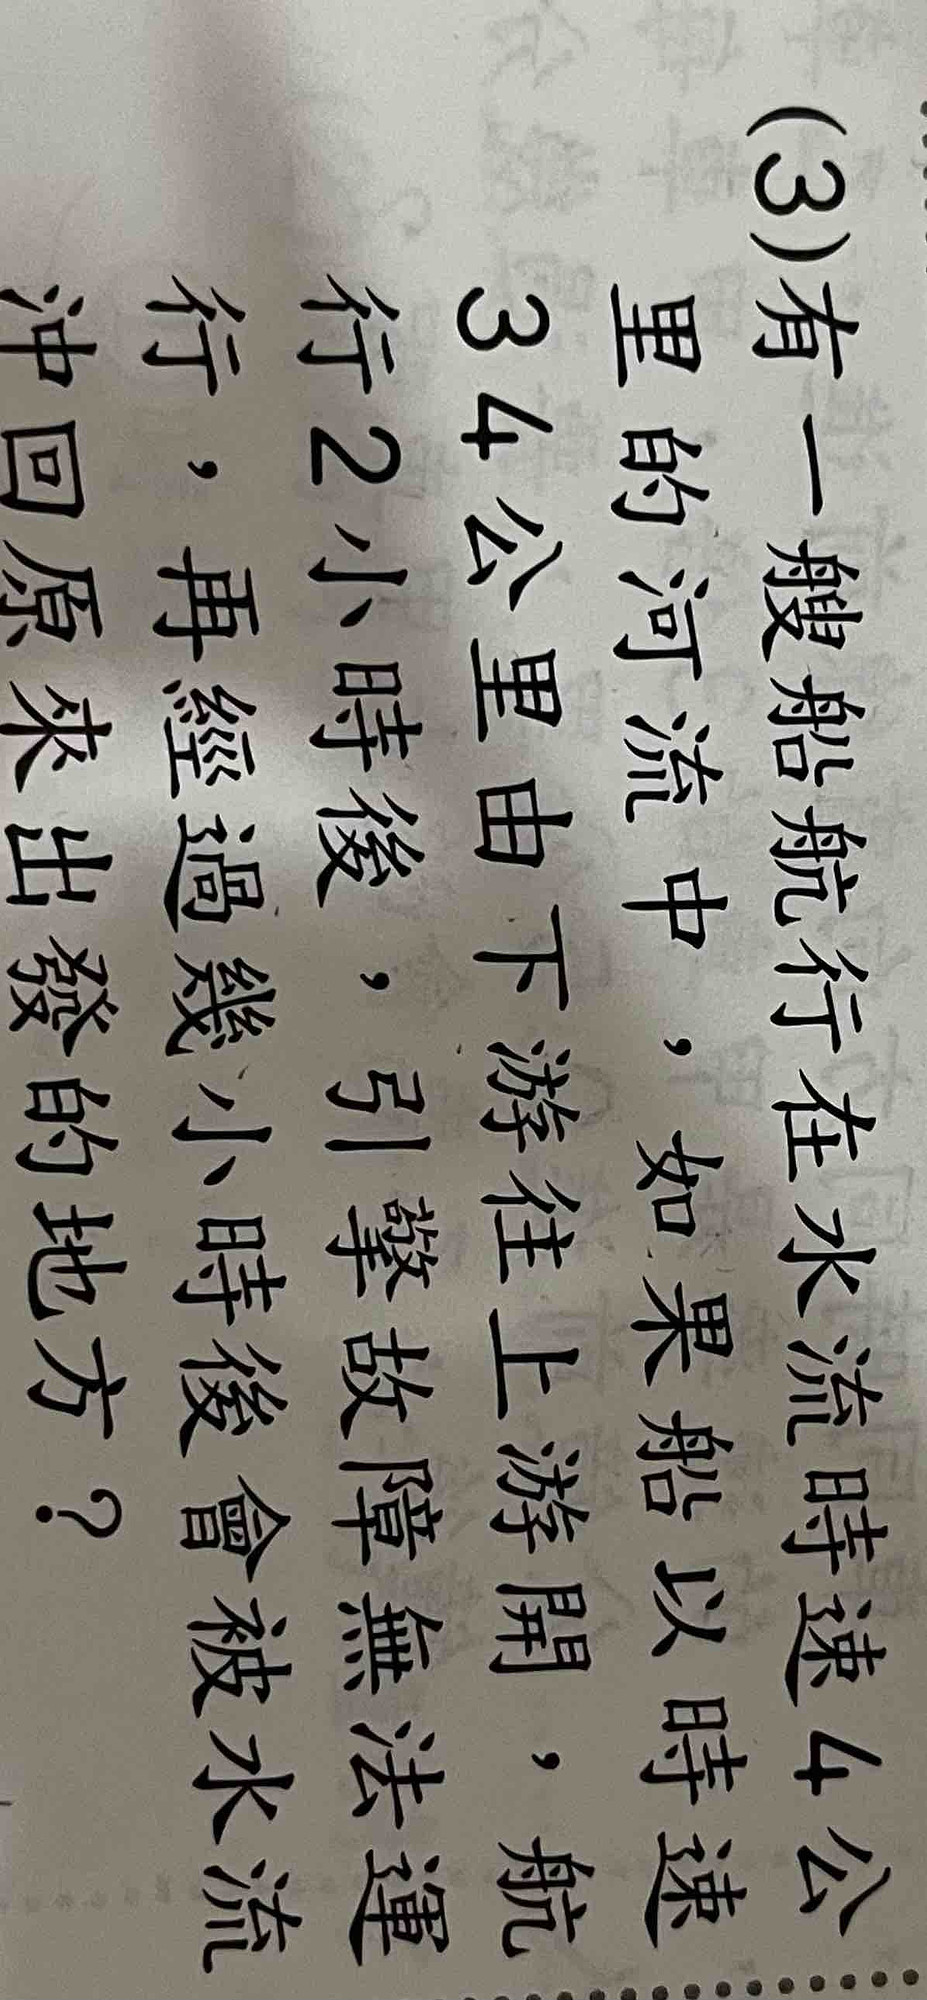 (3)有一艘船航行在水流時速4公
里的河流中，如果船以時速
34公里由下游往上游開，航
行2小時後，引擎故障無法運
行，再經過幾小時後會被水流
沖回原來出發的地方？